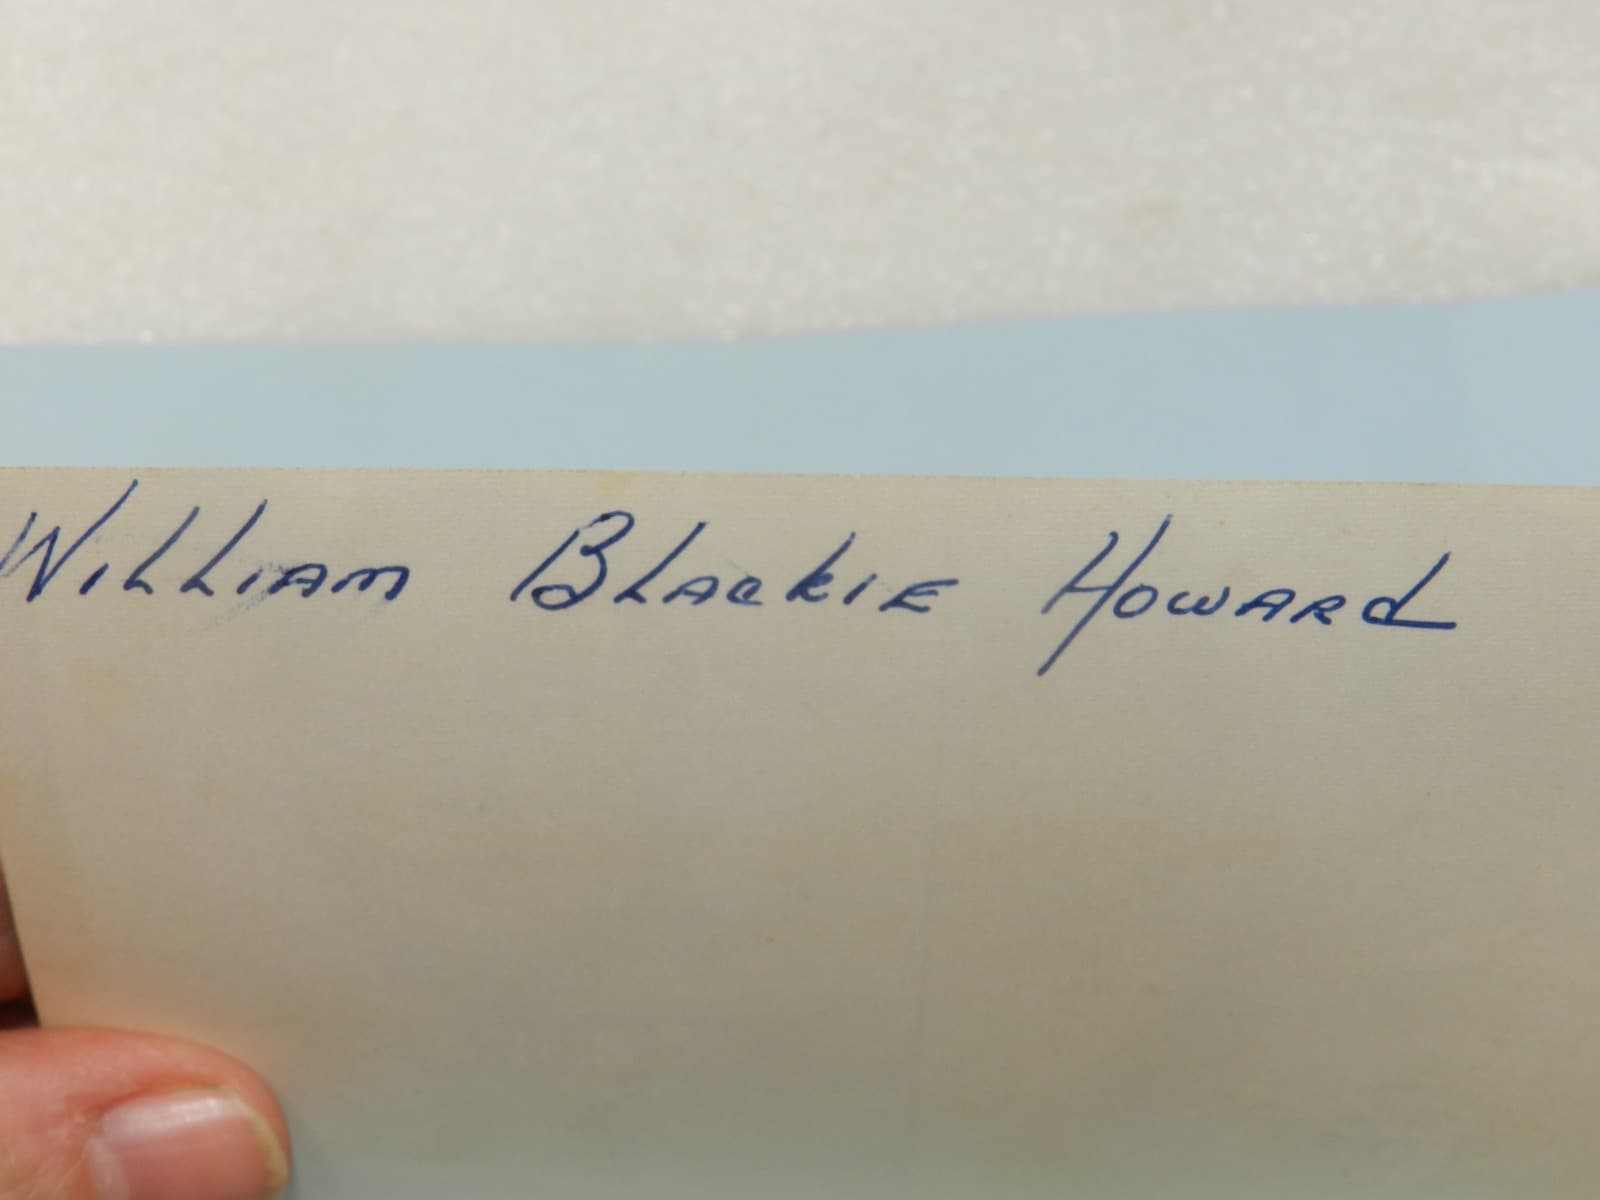 William Blackie Howard